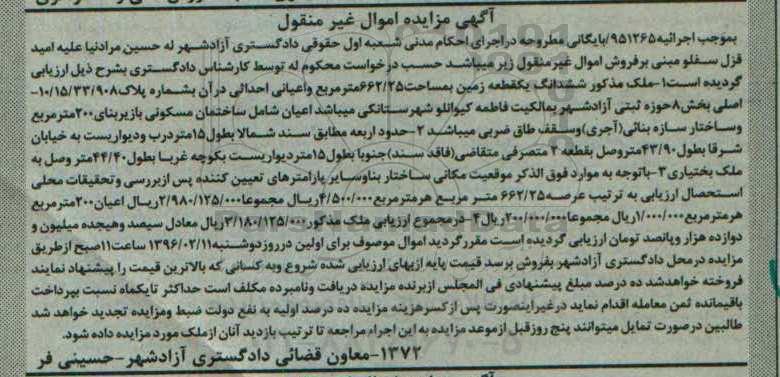 آگهی مزایده اموال غیر منقول
بموجب اجرائیه ۹۵۱۲۶۵/بایگانی مطروحه دراجرای احکام مدنی شعبه اول حقوقی دادگستری آزادشهر له حسین مرادنیا علیه امید
قزل سفلو مبنی برفروش اموال غیرمنقول زیر میباشد حسب درخواست محکوم له توسط کارشناس دادگستری بشرح ذیل ارزیابی
گردیده است۱-ملک مذکور ششدانگ یکقطعه زمین بمساحت۶۶۲/۲۵مترمربع واعیانی احداثی درآن بشماره پلاک۱۰/۱۵/۳۳/۹۰۸-
اصلی بخش۸حوزه ثبتی آزادشهر بمالکیت فاطمه کیوانلو شهرستانکی میباشد اعیان شامل ساختمان مسکونی بازیربنای۲۰۰مترمربع
وساختار سازه بنائی(آجری)وسقف طاق ضربی میباشد ۲-حدود اربعه مطابق سند شمالا بطول۱۵متردرب ودیواریست به خیابان
شرقا بطول۴۳/۹۰متروصل بقطعه۲ متصرفی متقاضی(فاقد سند)جنوبا بطول۱۵متردیواریست بکوچه غربا بطول۴۴/۴۰متر وصل به
ملک بختیاری۳-باتوجه به موارد فوق الذکر موقعیت مکانی ساختار بناوسایر پارامترهای تعیین کننده پس ازبررسی وتحقیقات محلی
استحصال ارزیابی به ترتیب عرصه۶۶۲/۲۵ متر مربع هرمترمربع۴/۵۰۰/۰۰۰ریال مجموعا۲/۹۸۰/۱۲۵/۰۰۰ریال اعیان۲۰۰مترمربع
هرمترمربع۱/۰۰۰/۰۰۰ریال مجموعا۲۰۰/۰۰۰/۰۰۰ریال۴-درمجموع ارزیابی ملک مذکور۳/۱۸۰/۱۲۵/۰۰۰ریال معادل سیصد وهیجده میلیون و
دوازده هزار وپانصد تومان ارزیابی گردیده است مقررگردید اموال موصوف برای اولین درروزدوشنبه۱۳۹۶/۰۲/۱۱ ساعت۱۱صبح ازطریق
مزایده درمحل دادگستری آزادشهر بفروش برسد قیمت پایه ازبهای ارزیابی شده شروع وبه کسانی که بالاترین قیمت را پیشنهاد نمایند
فروخته خواهدشد ده درصد مبلغ پیشنهادی فی المجلس ازبرنده مزایده دریافت ونامبرده مکلف است حداکثر تایکماه نسبت بپرداخت
باقیمانده ثمن معامله اقدام نماید درغیراینصورت پس ازکسرهزینه مزایده ده درصد اولیه به نفع دولت ضبط ومزایده تجدید خواهد شد
طالبین درصورت تمایل میتوانند پنج روزقبل ازموعد مزایده به این اجراء مراجعه تا ترتیب بازدید آنان ازملک مورد مزایده داده شود.
۱۳۷۲-معاون قضائی دادگستری آزادشهر-حسینی فر